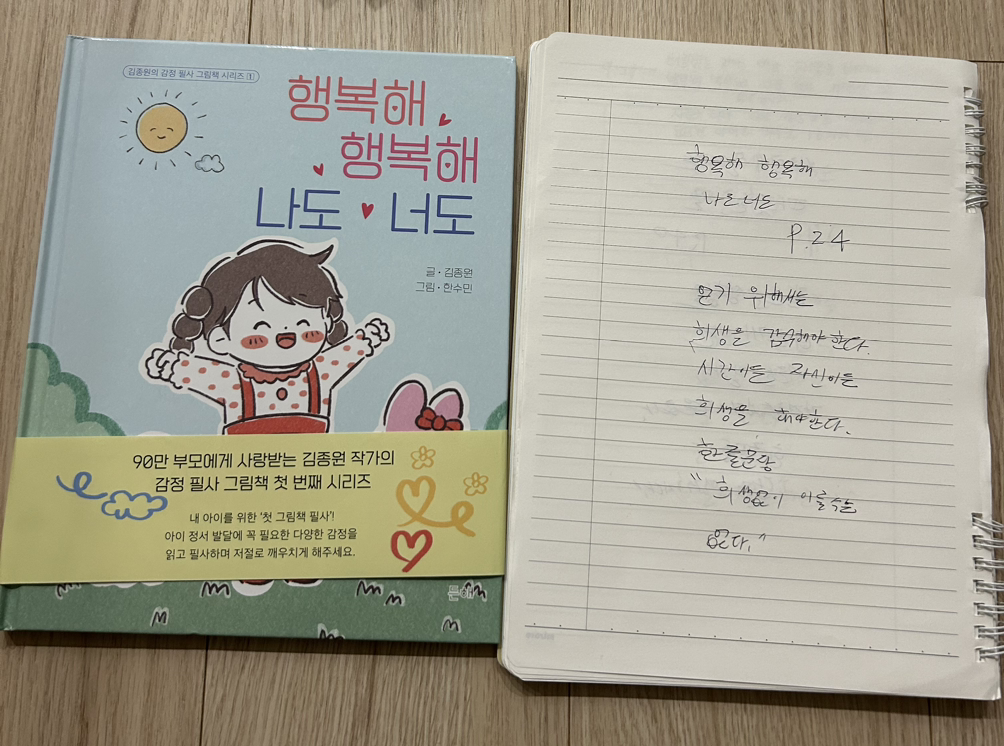 김종원의 감정 필사 그림책 시리즈 1
행복해
행복해
나도 너도
글·김종원
그림·한수민
90만 부모에게 사랑받는 김종원 작가의
감정 필사 그림책 첫 번째 시리즈
내 아이를 위한 '첫 그림책 필사'!
아이 정서 발달에 꼭 필요한 다양한 감정을
읽고 필사하며 저절로 깨우치게 해주세요.
행복해 행복해
나도 너도
P.24
얻기 위해서는
희생을 감수해야 한다.
시간이든 자신이든
희생을 해야한다.
한줄문장
"희생없이 이룰수는
없다."